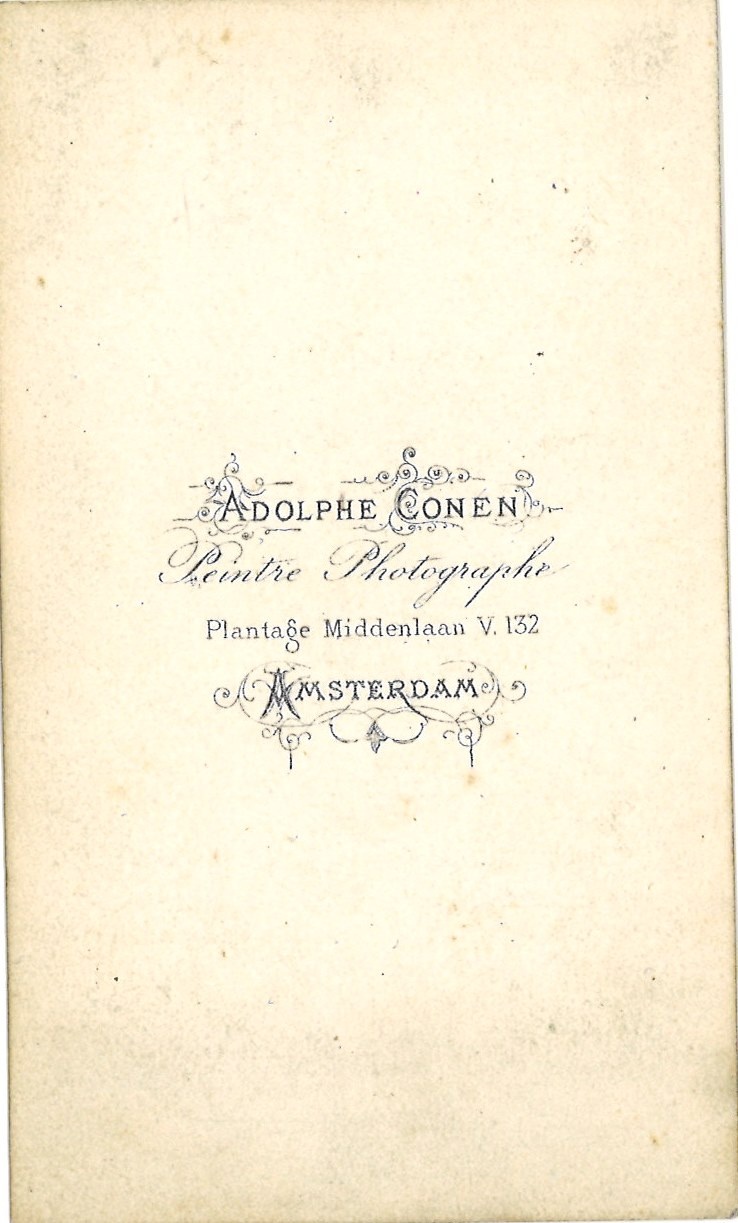 ADOLPHE CONEN
Peintre Photographe
Plantage Middenlaan V. 132
AMSTERDAM